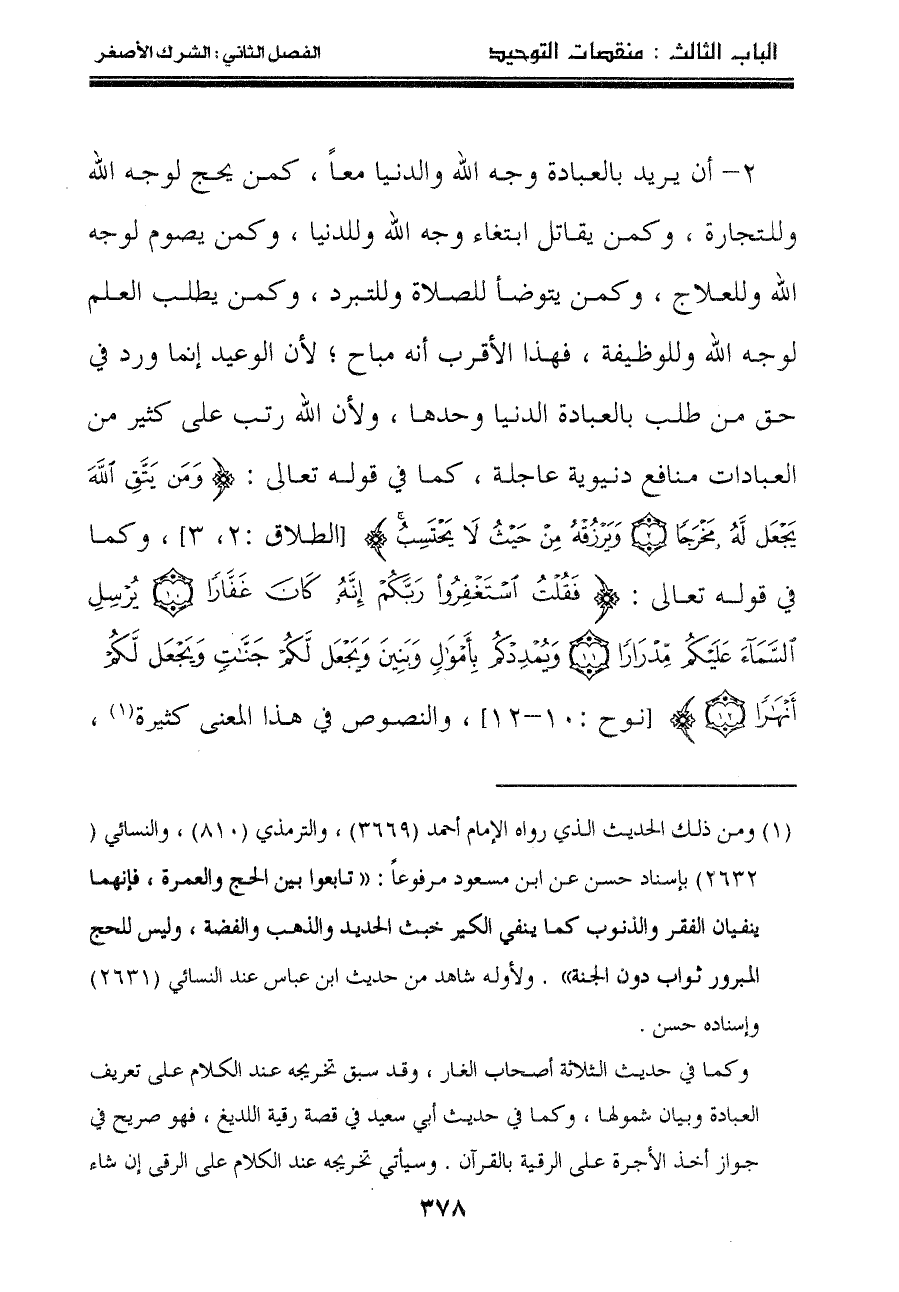 الباب الثالث : منقصات التوحيد الفصل الثاني : الشرك الأصغر
٢- أن يريد بالعبادة وجه الله والدنيا معاً ، كمن يحج لوجه الله
وللتجارة ، وكمن يقاتل ابتغاء وجه الله وللدنيا ، وكمن يصوم لوجه
الله وللعلاج ، وكمن يتوضأ للصلاة وللتبرد ، وكمن يطلب العلم
لوجه الله وللوظيفة ، فهذا الأقرب أنه مباح ؛ لأن الوعيد إنما ورد في
حق من طلب بالعبادة الدنيا وحدها ، ولأن الله رتب على كثير من
العبادات منافع دنيوية عاجلة ، كما في قوله تعالى : ﴿ وَمَن يَتَّقِ ٱللَّهَ
يَجْعَل لَّهُۥ مَخْرَجًا ۝٢ وَيَرْزُقْهُ مِنْ حَيْثُ لَا يَحْتَسِبُ ۚ ﴾ [الطلاق :٢، ٣] ، وكما
في قوله تعالى : ﴿ فَقُلْتُ ٱسْتَغْفِرُوا۟ رَبَّكُمْ إِنَّهُۥ كَانَ غَفَّارًا ۝١٠ يُرْسِلِ
ٱلسَّمَآءَ عَلَيْكُم مِّدْرَارًا ۝١١ وَيُمْدِدْكُم بِأَمْوَٰلٍ وَبَنِينَ وَيَجْعَل لَّكُمْ جَنَّٰتٍ وَيَجْعَل لَّكُمْ
أَنْهَٰرًا ۝١٢ ﴾ [نوح :١٠-١٢] ، والنصوص في هذا المعنى كثيرة(١) ،
(١) ومن ذلك الحديث الذي رواه الإمام أحمد (٣٦٦٩) ، والترمذي (٨١٠) ، والنسائي (
٢٦٣٢) بإسناد حسن عن ابن مسعود مرفوعاً : « تابعوا بين الحج والعمرة ، فإنهما
ينفيان الفقر والذنوب كما ينفي الكير خبث الحديد والذهب والفضة ، وليس للحج
المبرور ثواب دون الجنة» . ولأوله شاهد من حديث ابن عباس عند النسائي (٢٦٣١)
وإسناده حسن .
وكما في حديث الثلاثة أصحاب الغار ، وقد سبق تخريجه عند الكلام على تعريف
العبادة وبيان شمولها ، وكما في حديث أبي سعيد في قصة رقية اللديغ ، فهو صريح في
جواز أخذ الأجرة على الرقية بالقرآن . وسيأتي تخريجه عند الكلام على الرقى إن شاء
٣٧٨